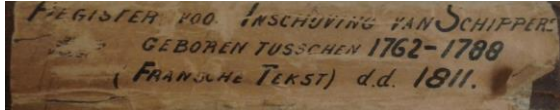 REGISTER VOO. INSCHUVING VAN SCHIPPERS
GEBOREN TUSSCHEN 1762-1788
(FRANSCHE TEKST) d.d. 1811.